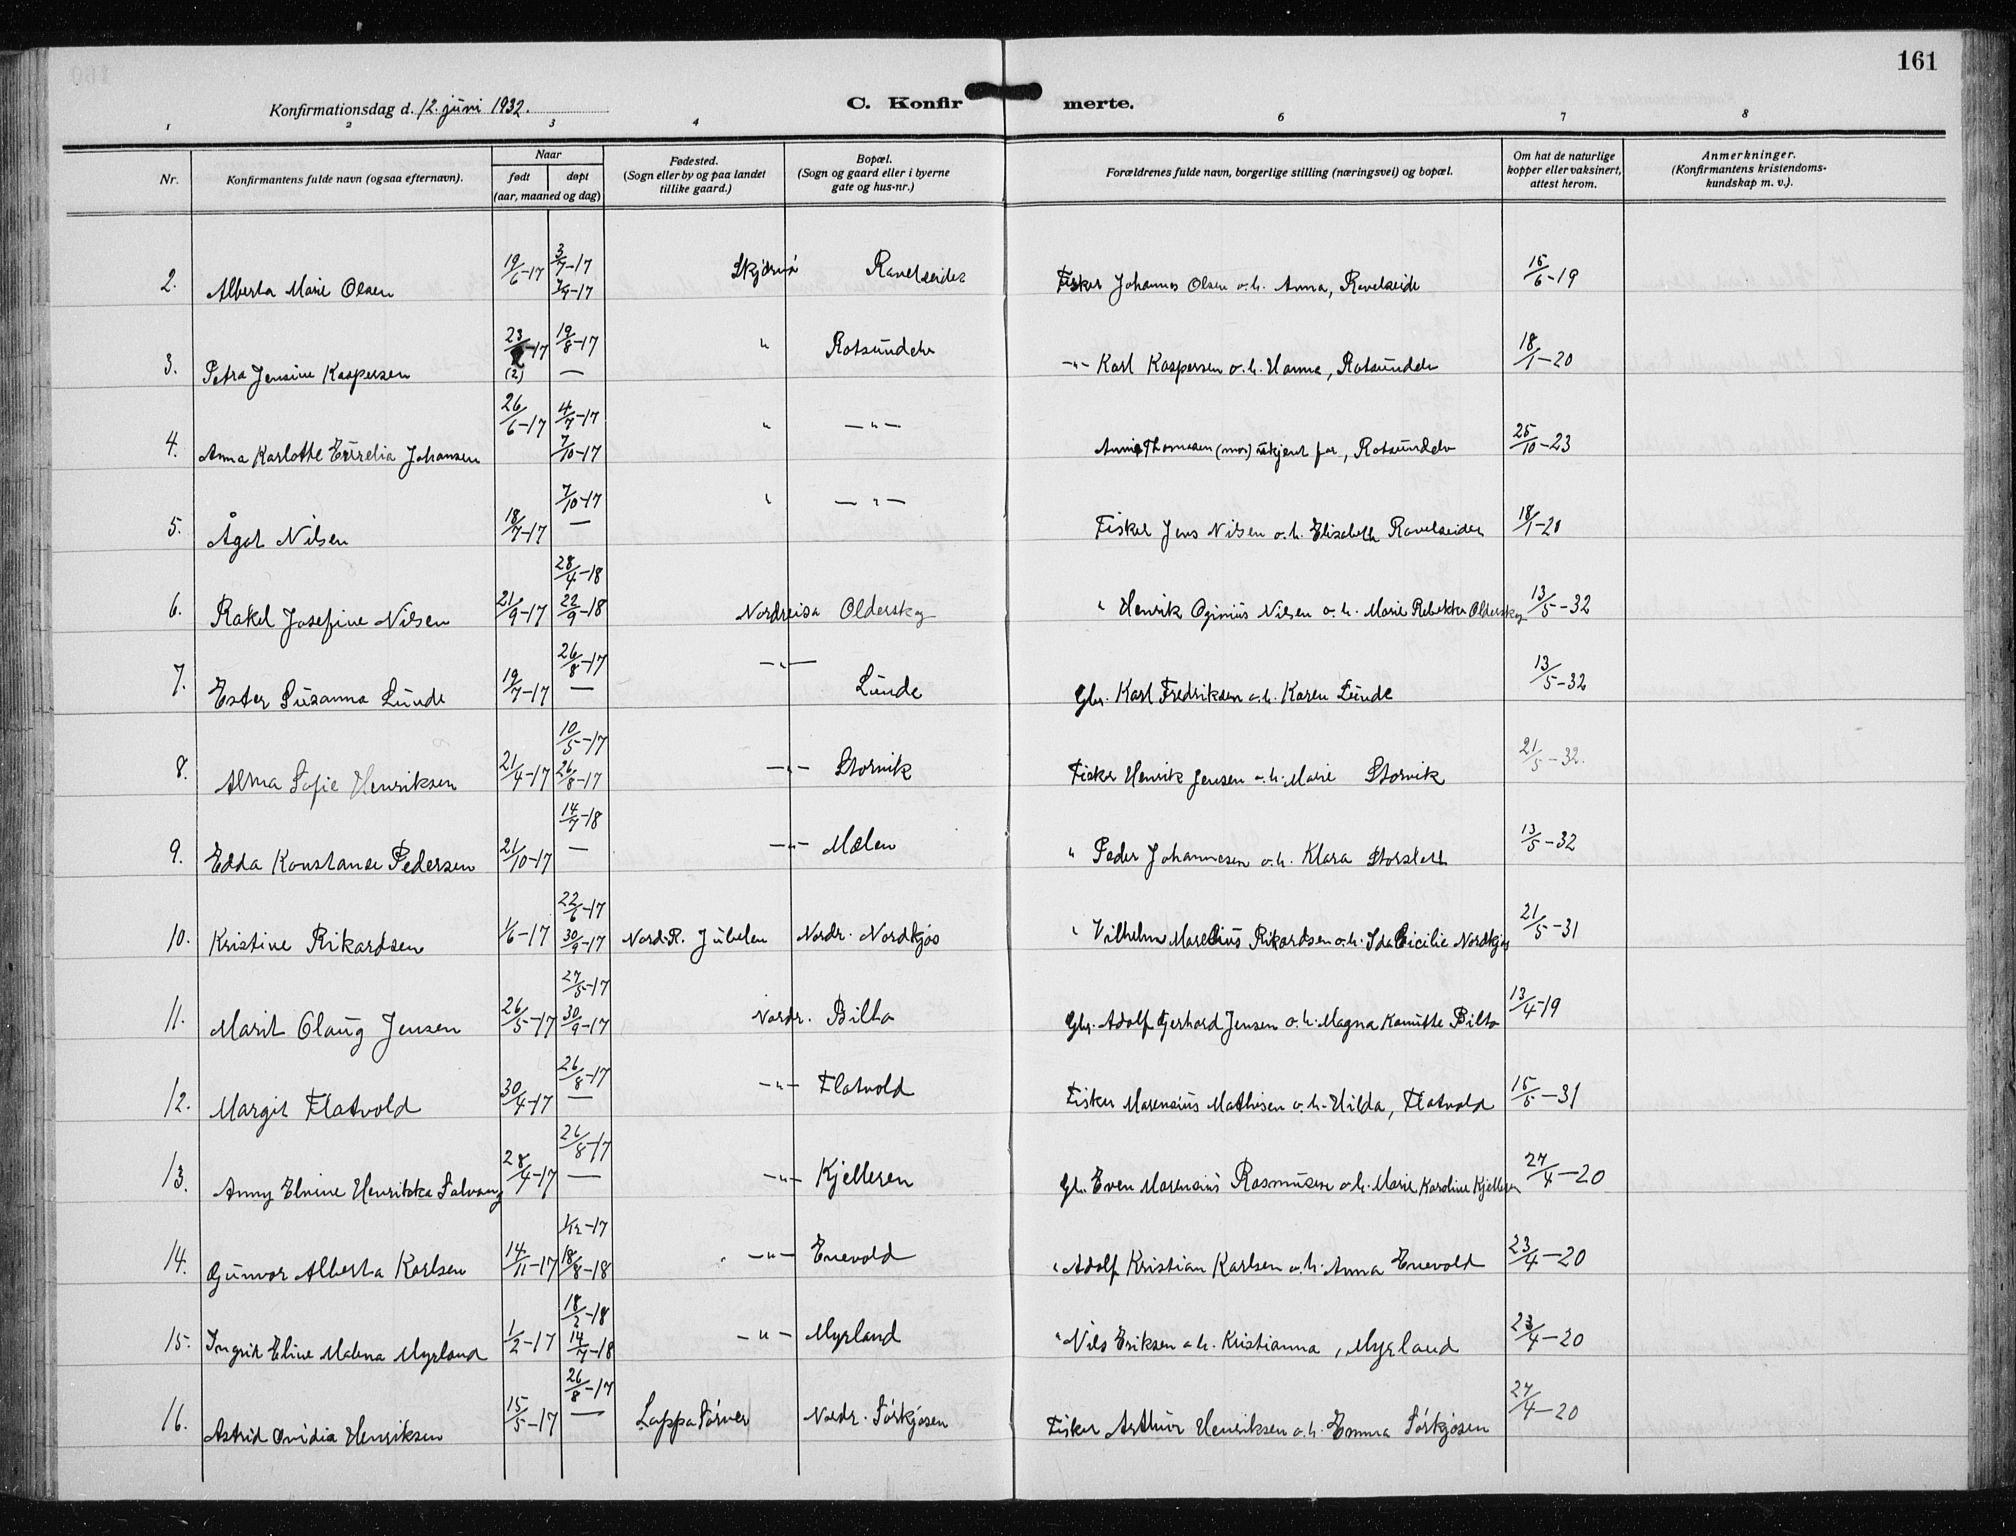 161
Konfirmationsdag d. 12. juni 1932.
C. Konfirmerte.
1 2 3 4 6 7 8
Nr.
Konfirmantens fulde navn (ogsaa efternavn).
Naar
født
døpt
(aar, maaned og dag)
Fødested.
(Sogn eller by og paa landet
tillike gaard.)
Bopæl.
(Sogn og gaard eller i byerne
gate og hus-nr.)
Forældrenes fulde navn, borgerlige stilling (næringsvei) og bopæl.
Om hat de naturlige
kopper eller vaksinert,
attest herom.
Anmerkninger.
(Konfirmantens kristendoms-
kundskap m. v.).
2. Alberta Marie Olsen 19/6-17 3/7-17 Skjærvø Ravelseidet Fisker Johannes Olsen o.h. Anna, Ravelseide 15/6-19
3. Petra Jensine Kaspersen 23/2-17 (2) 19/8-17 — " Rotsundelv -"- Karl Kaspersen o.h. Hanna, Rotsundelv 18/1-20
4. Anna Karlotte Johansen 26/6-17 4/7-17 7/10-17 " -"- Thomasen (mor) ukjent far, Rotsundelv 25/10-23
5. Ågot Nilsen 18/7-17 7/10-17 — " -"- Fisker Jens Nilsen o.h. Elisabeth Ravelseidet 18/1-20
6. Rakel Josefine Nilsen 21/9-17 28/4-18 22/9-18 Nordreisa Olderskog " Henrik Nilsen o.h. Marie Rebekka Olderskog 13/5-32
7. Ester Susanna Lunde 19/7-17 26/8-17 — -"- Lunde Gbr. Karl Fredriksen o.h. Karen Lunde 13/5-32
8. Alma Sofie Henriksen 21/4-17 10/5-17 26/8-17 -"- Storvik Fisker Henrik Jensen o.h. Marie Storvik 21/5-32.
9. Edda Konstanse Pedersen 21/10-17 14/7-18 — -"- Mælen " Peder Johannesen o.h. Klara Storslett 13/5-32
10. Kristine Rikardsen 1/6-17 22/6-17 30/9-17 Nord.R. Jubelen Nordr. Nordkjos " Vilhelm Marelius Rikardsen o.h. Ida Cicilie Nordkjos 21/5-31
11. Marit Olaug Jensen 26/5-17 27/5-17 30/9-17 Nordr. Bilto Gbr. Adolf Gerhard Jensen o.h. Magna Kamitte Bilto 13/4-19
12. Margit Flatvold 30/4-17 26/8-17 — -"- Flatvold Fisker Marensius Mathisen o.h. Hilda, Flatvold 15/5-31
13. Anny Elvine Henrikka Salvang 28/4-17 26/8-17 — -"- Kjelleren Gb. Even Marensius Rasmussen o.h. Marie Karoline Kjelleren 27/4-20
14. Gunvor Alberta Karlsen 14/11-17 1/12-17 18/8-18 -"- Enevold " Adolf Kristian Karlsen o.h. Anna Enevold 23/4-20
15. Ingrid Eline Malena Myrland 1/2-17 18/2-18 14/7-18 -"- Myrland " Nils Eriksen o.h. Kristianna, Myrland 23/4-20
16. Astrid Ovidia Henriksen 15/5-17 26/8-17 — Nordr. Sørkjosen Fisker Arthur Henriksen o.h. Emma Sørkjosen 27/4-20